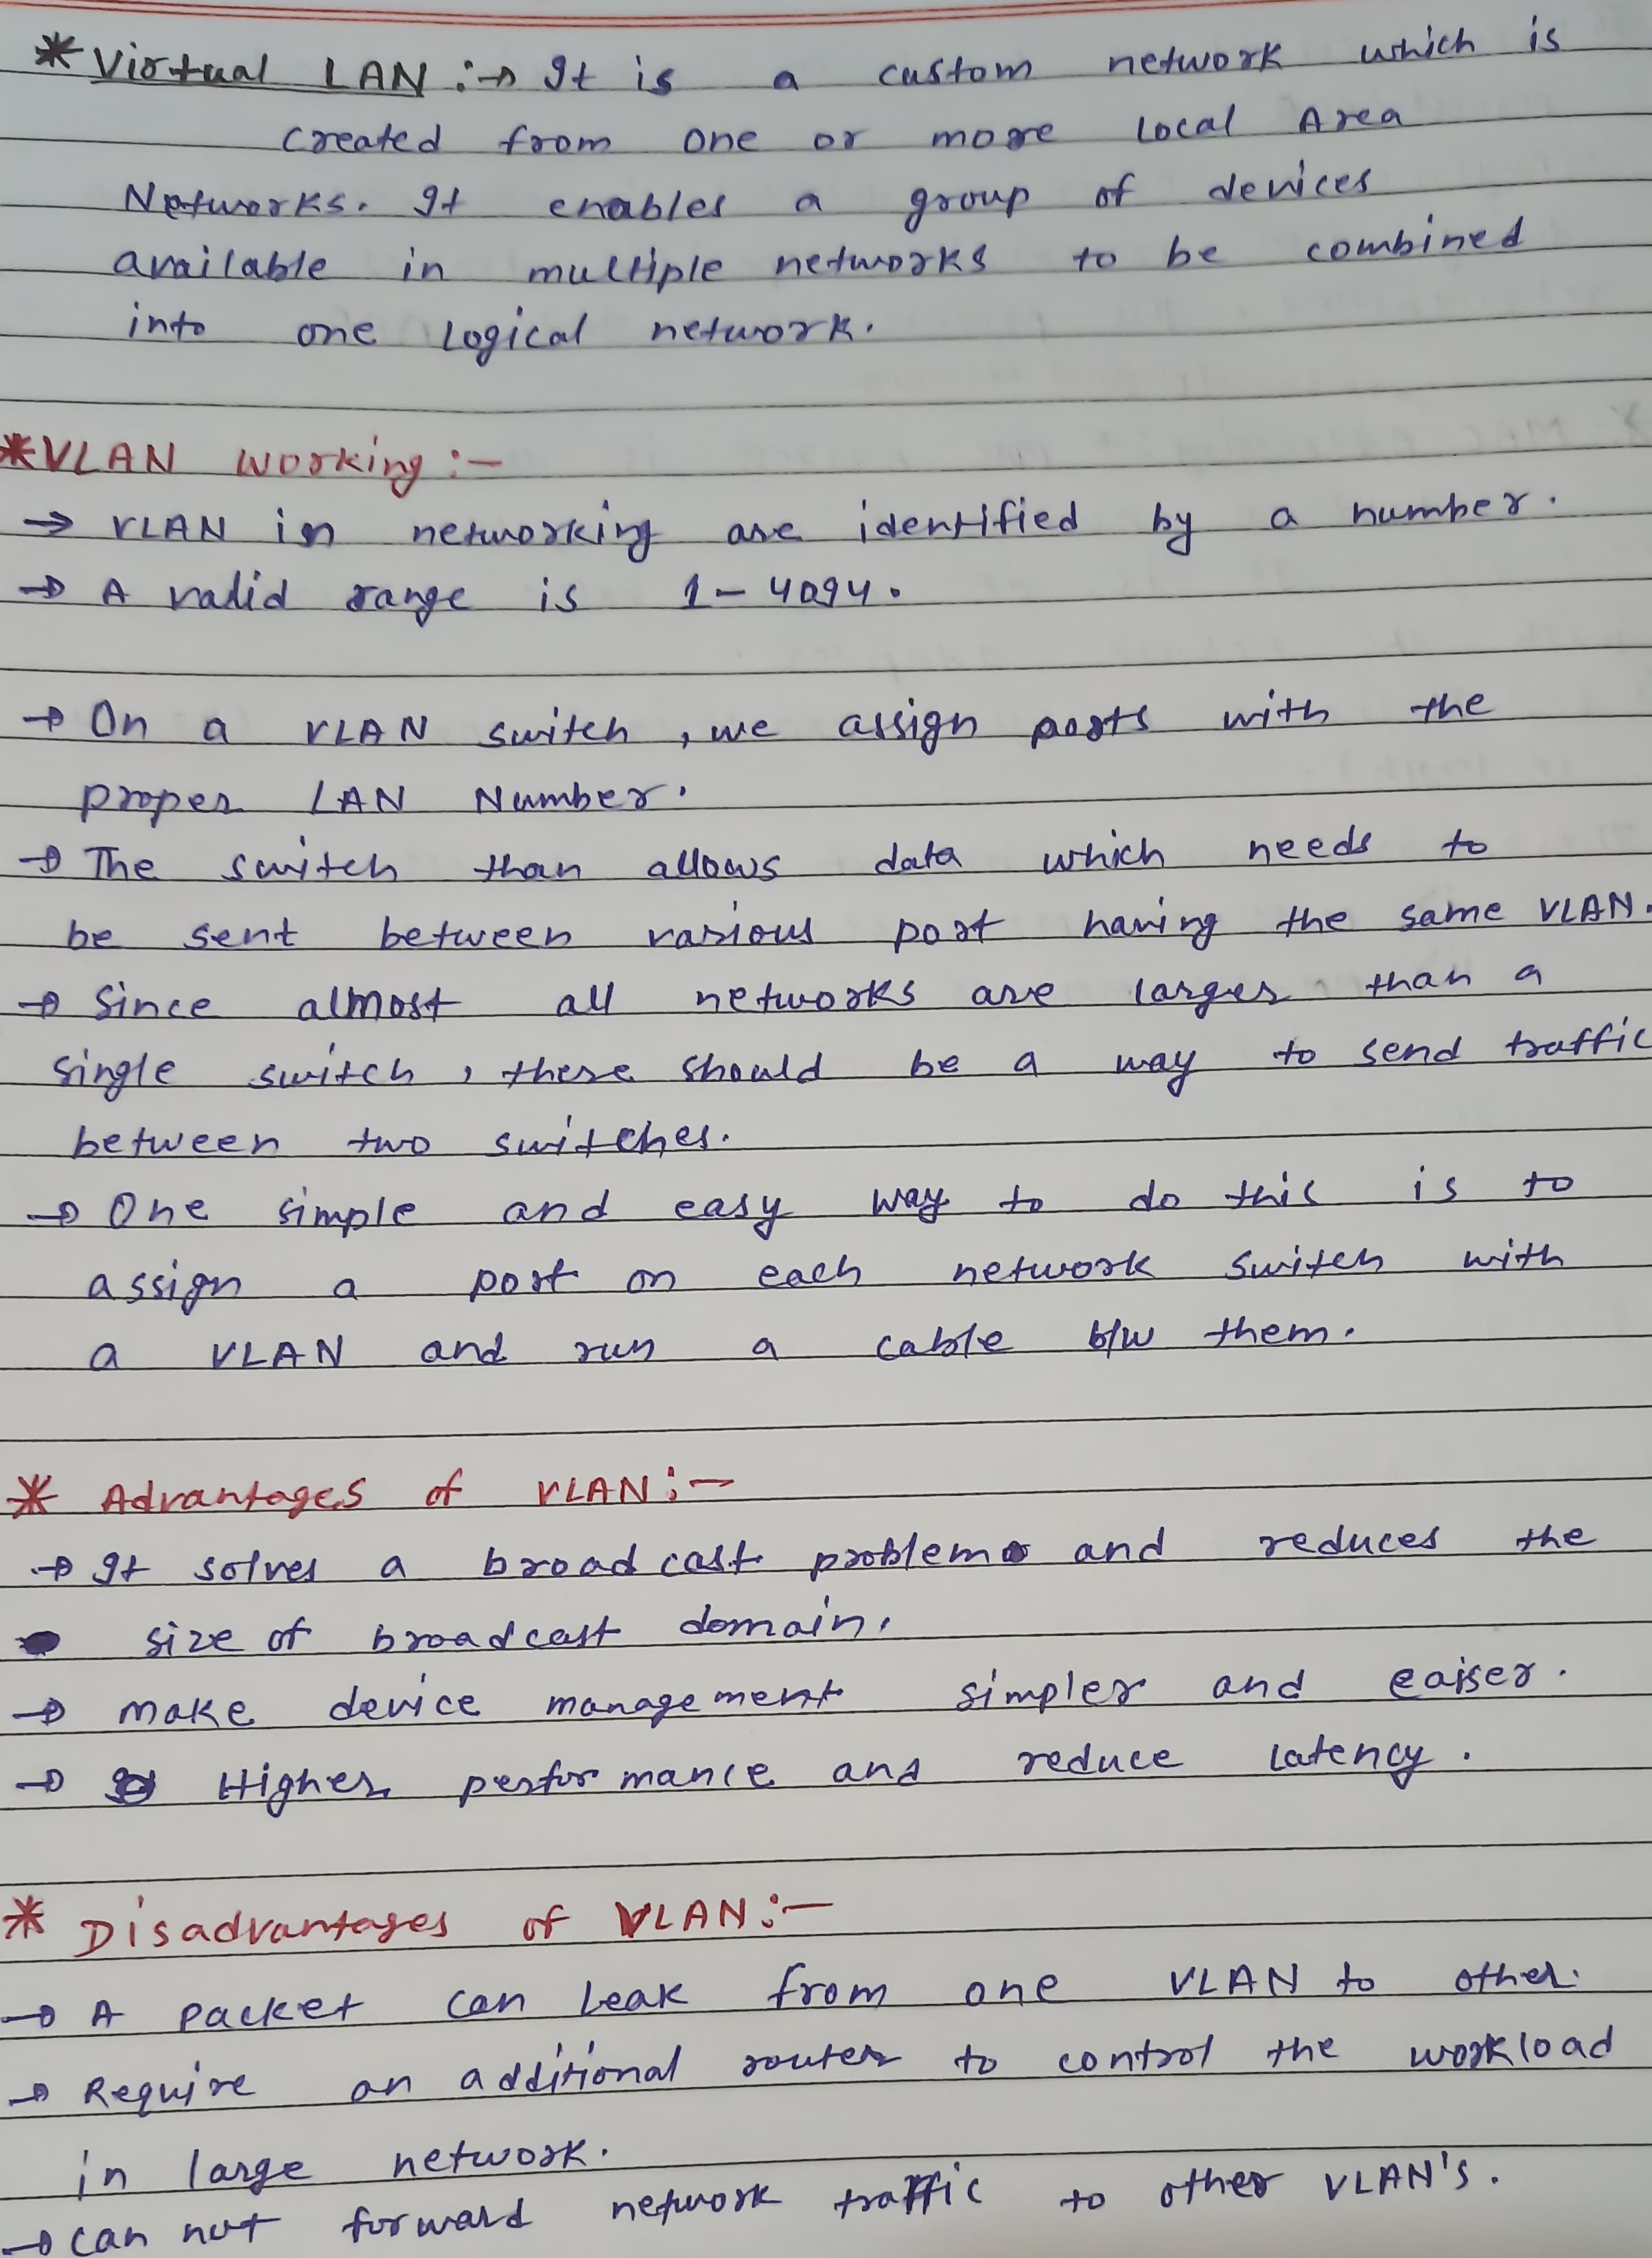 *Virtual LAN :→ It is a custom network which is
created from one or more Local Area
Networks. It enables a group of devices
available in multiple networks to be combined
into one Logical network.
*VLAN working :-
→ VLAN in networking are identified by a number.
→ A valid range is 1-4094.
→ On a VLAN switch, we assign ports with the
proper LAN Number.
→ The switch than allows data which needs to
be sent between various port having the same VLAN.
→ Since almost all networks are larger than a
single switch, there should be a way to send traffic
between two switches.
→ One simple and easy way to do this is to
assign a port on each network switch with
a VLAN and run a cable b/w them.
* Advantages of VLAN :-
→ It solves a broadcast problem and reduces the
size of broadcast domain.
→ Make device management simpler and eaiser.
→ Higher performance and reduce latency.
* Disadvantages of VLAN :-
→ A packet can leak from one VLAN to other.
→ Require an additional router to control the workload
in large network.
→ can not forward network traffic to other VLAN's.